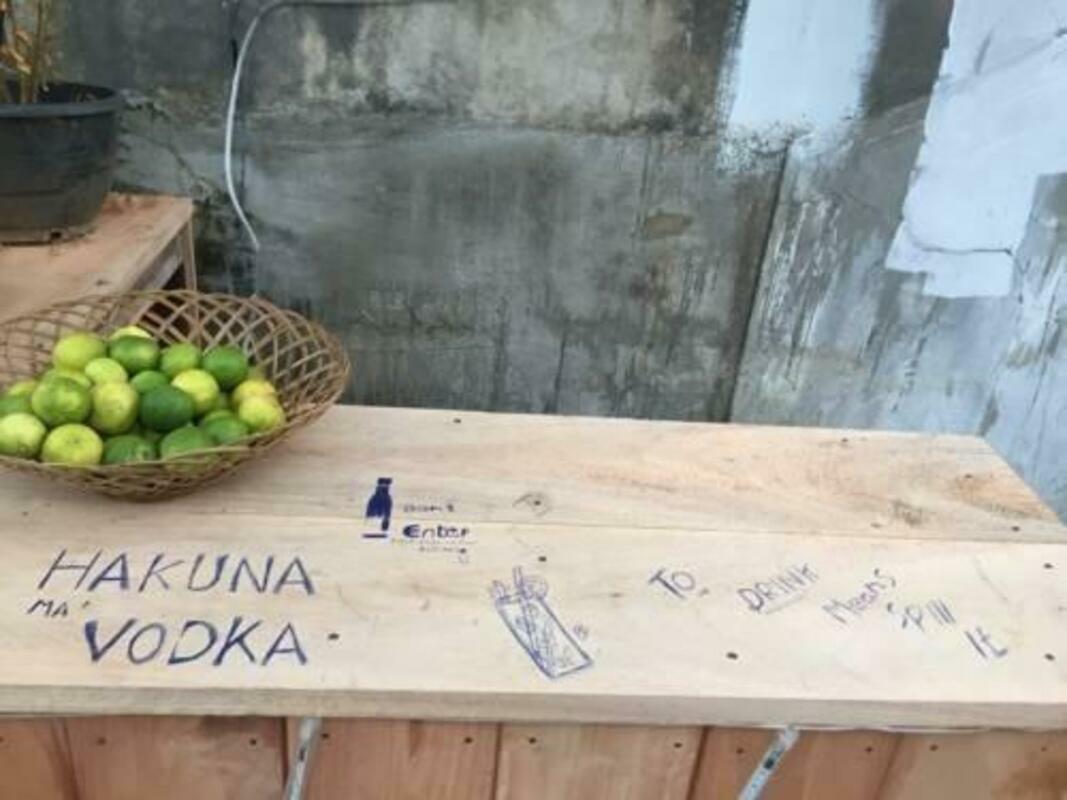 HAKUNA
MA'
VODKA
Enter
To
DRINK
Means
SPIll
It